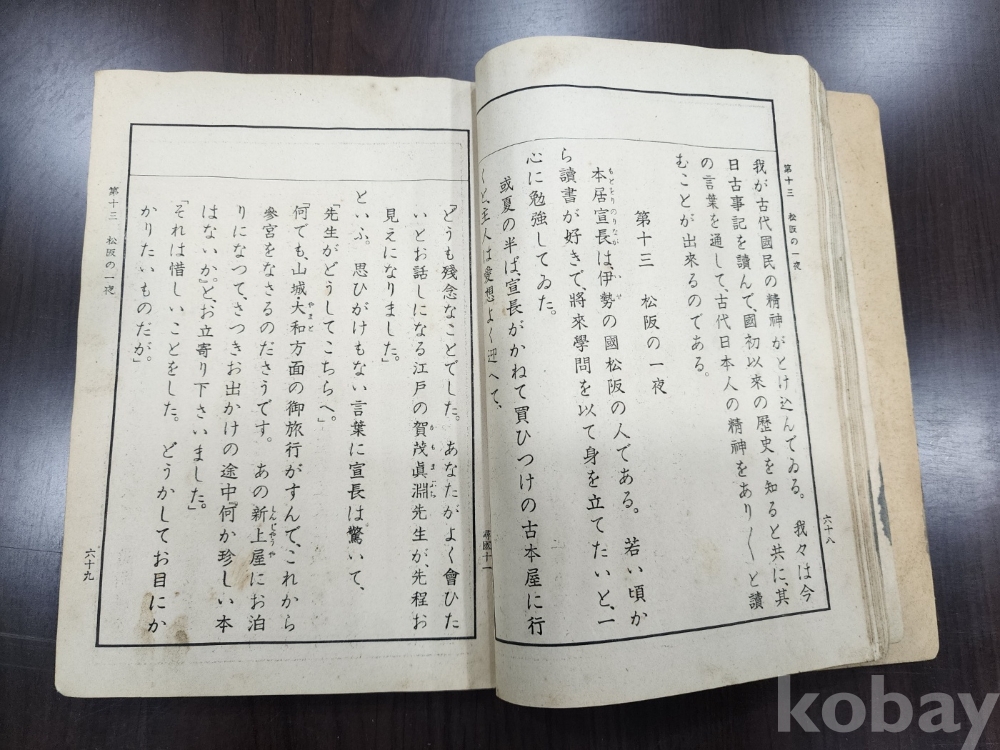 第十三 松阪の一夜
六十八
我が古代國民の精神がとけ込んでゐる。 我々は今
日古事記を讀んで、國初以來の歷史を知ると共に、其
の言葉を通して、古代日本人の精神をあり〱と讀
むことが出來るのである。
第十三 松阪の一夜
本居宣長は、伊勢の國松阪の人である。 若い頃か
ら讀書が好きで、將來學問を以て身を立てたいと、一
心に勉強してゐた。
或夏の半ば、宣長がかねて買ひつけの古本屋に行
くと、主人は愛想よく迎へて、
尋國十一
「どうも殘念なことでした。 あなたがよく會ひた
いとお話しになる江戸の賀茂眞淵先生が、先程お
見えになりました。」
といふ。 思ひがけもない言葉に宣長は驚いて、
「先生がどうしてこちらへ。」
「何でも、山城・大和方面の御旅行がすんで、これから
參宮をなさるのださうです。 あの新上屋にお泊
りになつて、さつきお出かけの途中『何か珍しい本
はないか。』と、お立寄り下さいました。」
「それは惜しいことをした。 どうかしてお目にか
かりたいものだが。」
第十三 松阪の一夜
六十九
kobay